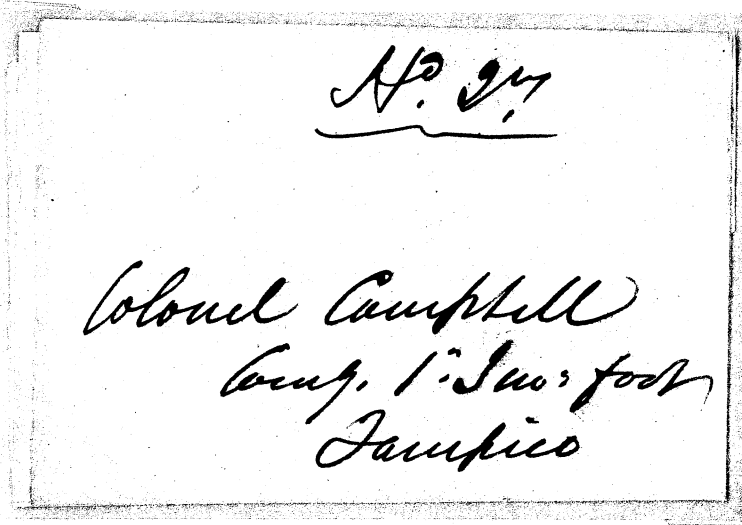 No. 27.
Colonel Campbell
Comg. 1st Ten: foot
Tampico